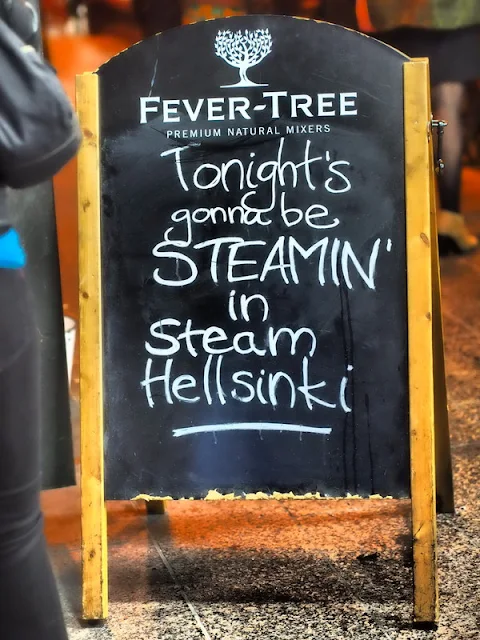 FEVER-TREE
PREMIUM NATURAL MIXERS
Tonight's
gonna be
STEAMIN'
in
Steam
Hellsinki